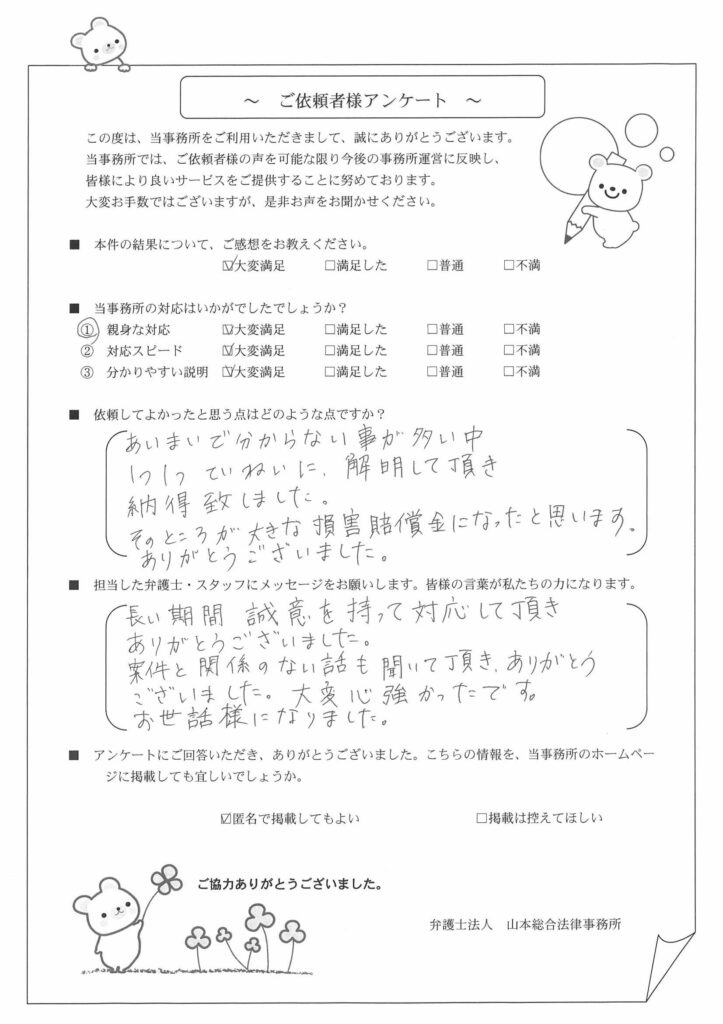 ～ ご依頼者様アンケート ～
この度は、当事務所をご利用いただきまして、誠にありがとうございます。
当事務所では、ご依頼者様の声を可能な限り今後の事務所運営に反映し、
皆様により良いサービスをご提供することに努めております。
大変お手数ではございますが、是非お声をお聞かせください。
■ 本件の結果について、ご感想をお教えください。
☑大変満足 □満足した □普通 □不満
■ 当事務所の対応はいかがでしたでしょうか？
① 親身な対応 ☑大変満足 □満足した □普通 □不満
② 対応スピード ☑大変満足 □満足した □普通 □不満
③ 分かりやすい説明 ☑大変満足 □満足した □普通 □不満
■ 依頼してよかったと思う点はどのような点ですか？
あいまいで分からない事が多い中
1つ1つ ていねいに、解明して頂き
納得致しました。
そのところが大きな損害賠償金になったと思います。
ありがとうございました。
■ 担当した弁護士・スタッフにメッセージをお願いします。皆様の言葉が私たちの力になります。
長い期間 誠意を持って対応して頂き
ありがとうございました。
案件と関係のない話も聞いて頂き、ありがとう
ございました。大変心強かったです。
お世話様になりました。
■ アンケートにご回答いただき、ありがとうございました。こちらの情報を、当事務所のホームペー
ジに掲載しても宜しいでしょうか。
☑匿名で掲載してもよい □掲載は控えてほしい
ご協力ありがとうございました。
弁護士法人 山本総合法律事務所